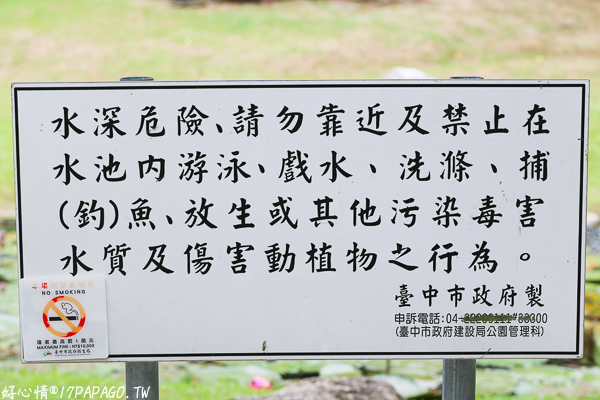 水深危險、請勿靠近及禁止在
水池內游泳、戲水、洗滌、捕
(釣)魚、放生或其他污染毒害
水質及傷害動植物之行為。
臺中市政府製
申訴電話:04-
(臺中市政府建設局公園管理科)
NO SMOKING
違者最高罰1萬元
MAXIMUM FINE:NT$10,000
臺中市政府衛生局
好心情®17PAPAGO.TW